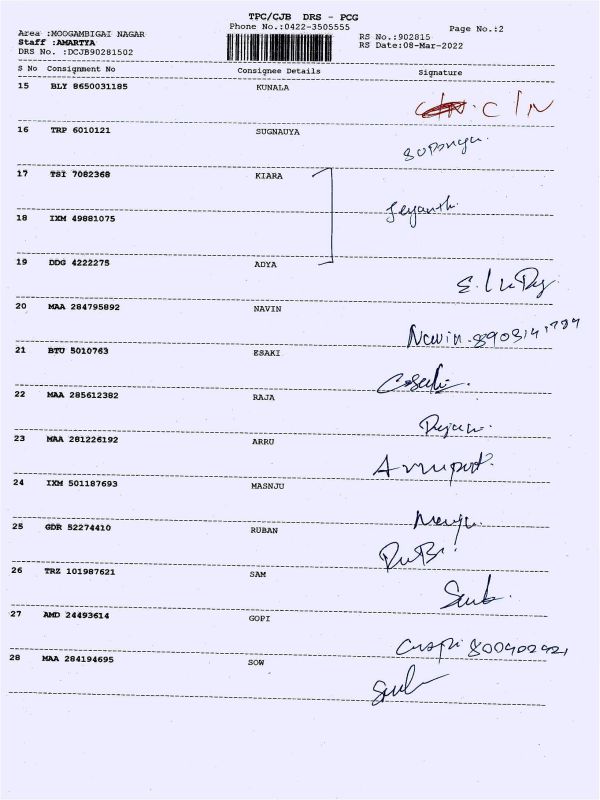 TPC/CJB DRS - PCG
Phone No.:0422-3505555
Page No.:2
Area :MOOGAMBIGAI NAGAR
Staff :AMARTYA
DRS No. :DCJB90281502
RS No.:902815
RS Date:08-Mar-2022
S No Consignment No Consignee Details Signature
15 BLY 8650031185 KUNALA
C/N
16 TRP 6010121 SUGNAUYA
17 TSI 7082368 KIARA
Jeyanth.
18 IXM 49881075
19 DDG 4222275 ADYA
20 MAA 284795892 NAVIN
Navin
21 BTU 5010763 ESAKI
22 MAA 285612382 RAJA
23 MAA 281226192 ARRU
24 IXM 501187693 MASNJU
25 GDR 52274410 RUBAN
26 TRZ 101987621 SAM
27 AMD 24493614 GOPI
28 MAA 284194695 SOW